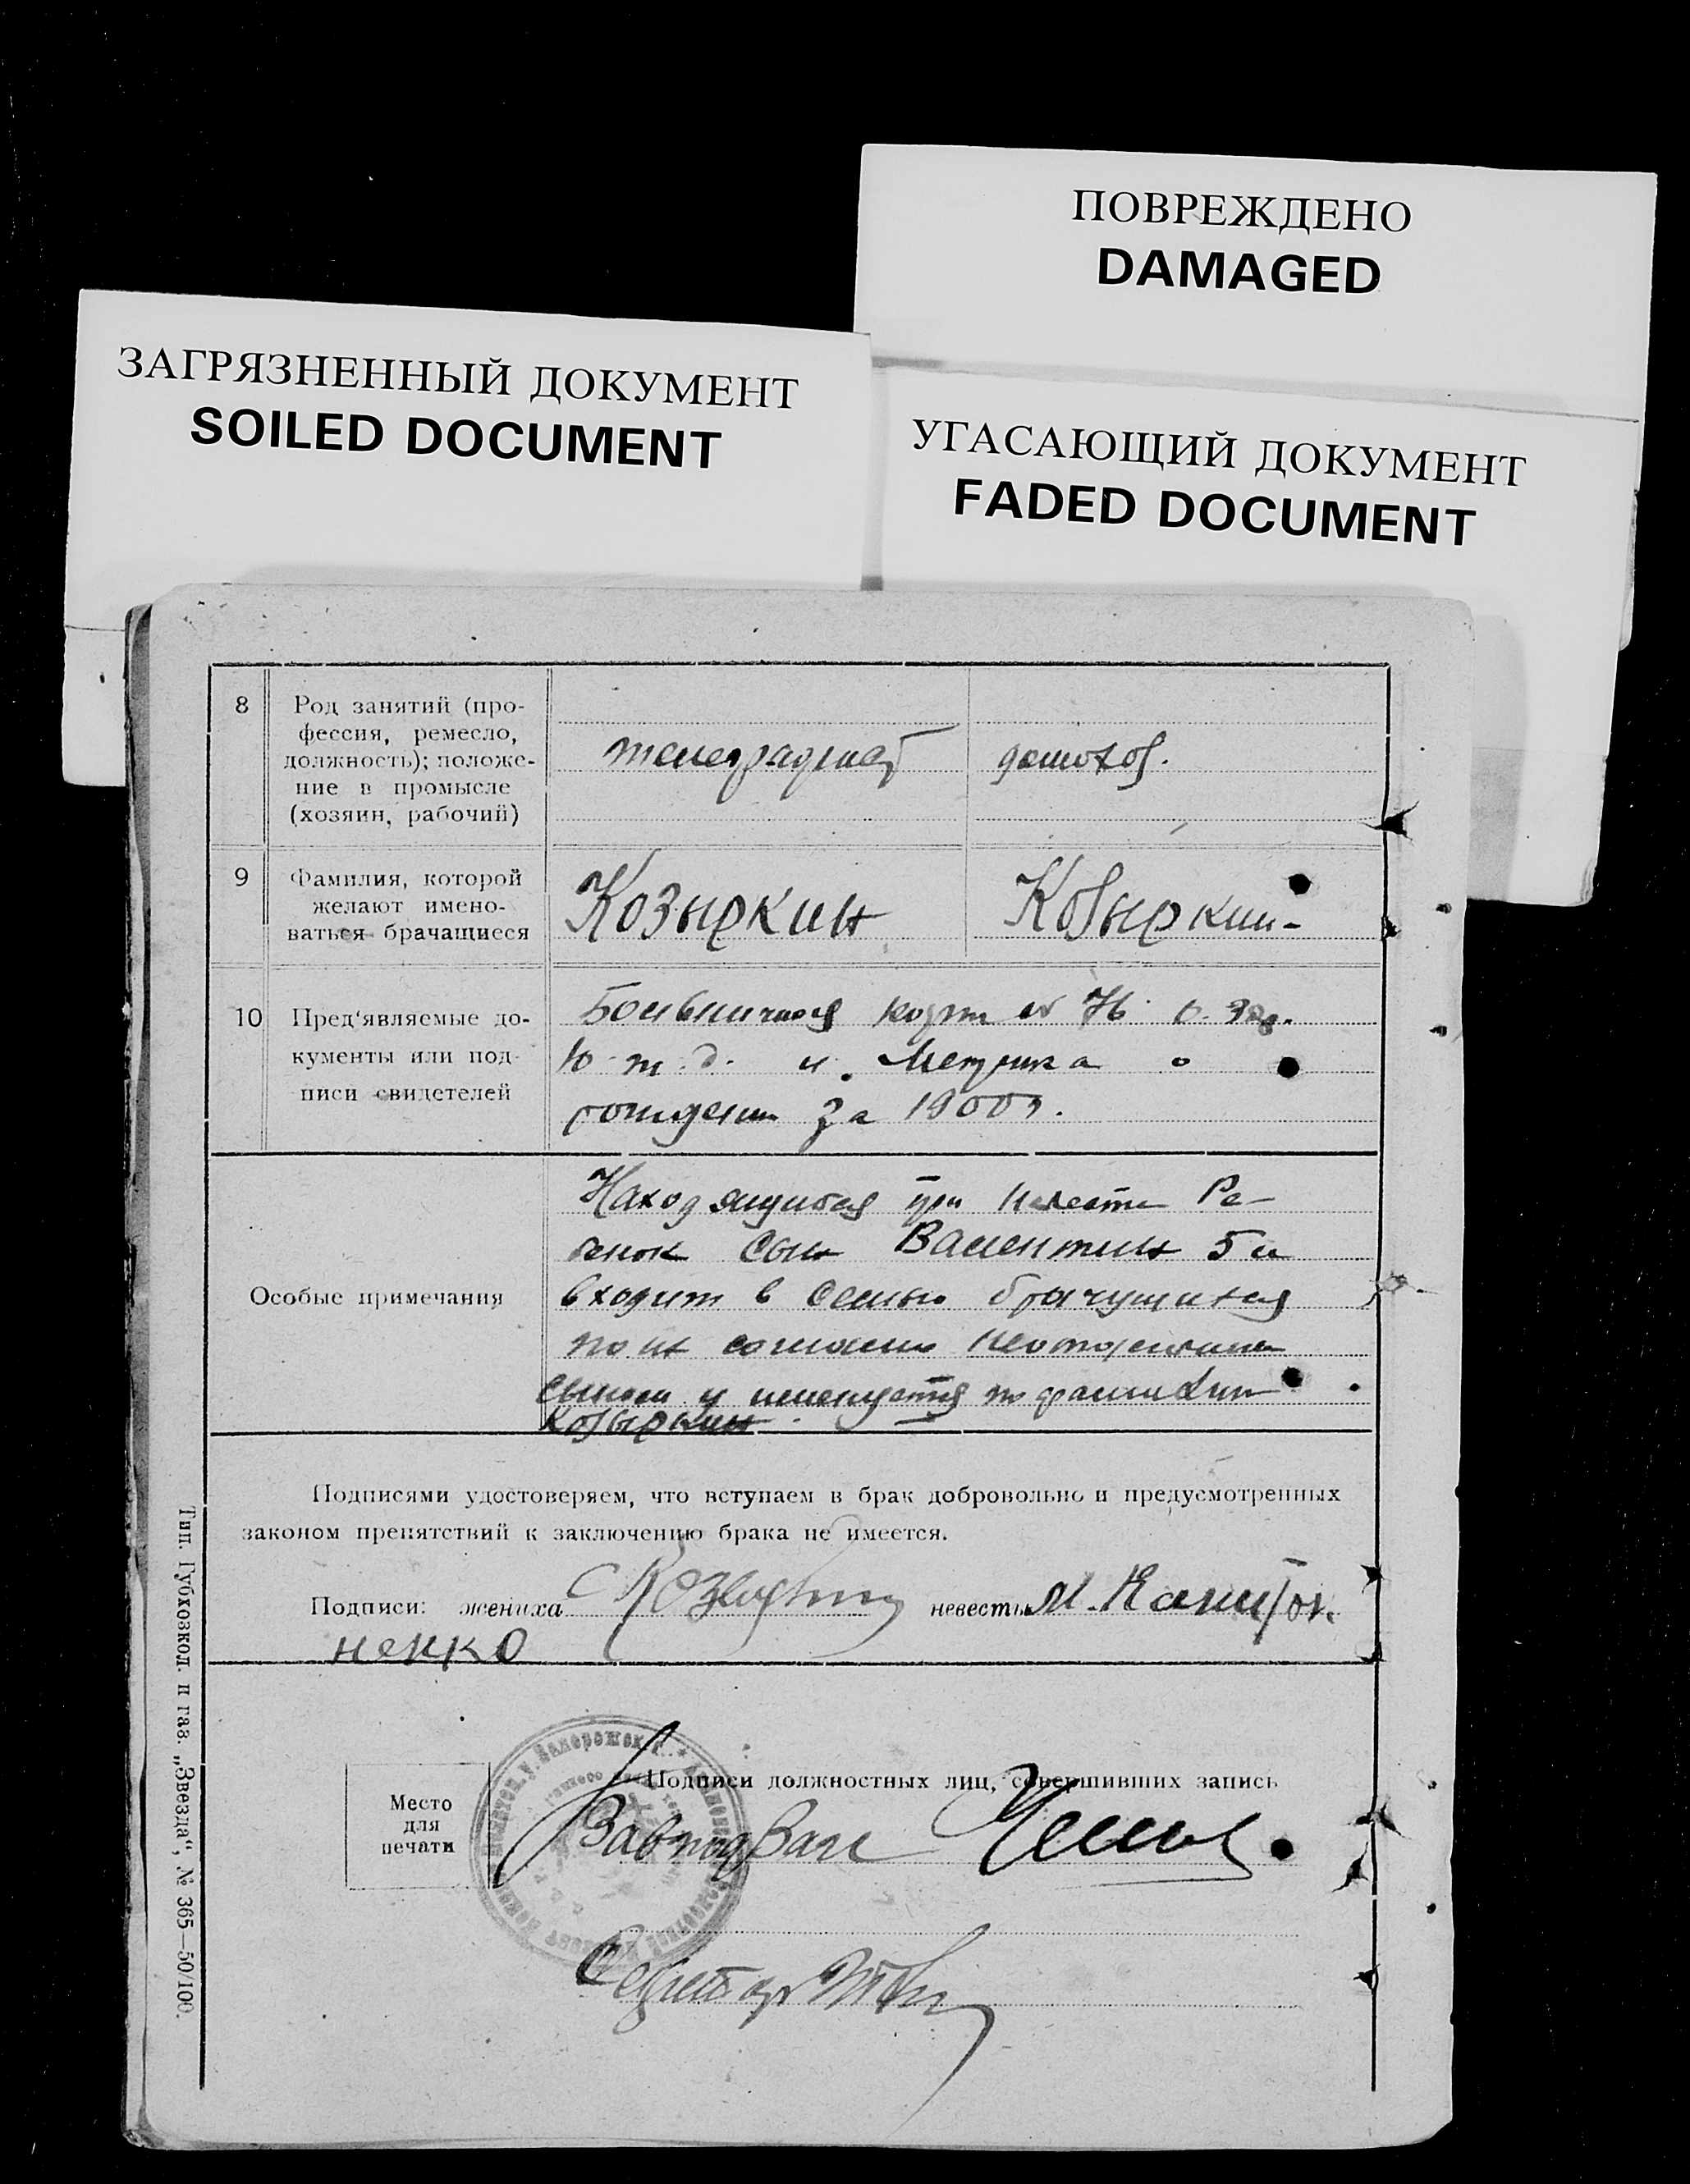 ПОВРЕЖДЕНО
DAMAGED
ЗАГРЯЗНЕННЫЙ ДОКУМЕНТ
SOILED DOCUMENT
УГАСАЮЩИЙ ДОКУМЕНТ
FADED DOCUMENT
8 Род занятий (про-
фессия, ремесло,
должность); положе-
ние в промысле
(хозяин, рабочий)
телеграфист домохоз.
9 Фамилия, которой
желают имено-
ваться брачащиеся
Козыркин Козыркин-
10 Пред'являемые до-
кументы или под-
писи свидетелей
Больничная № 76
и. Метрика о
рождении за 1900 г.
Особые примечания
Находящийся при невесте Ре-
бенок сын Валентин 5 л
входит в семью брачущихся
по их
сыном и именуется по фамилии
Козыркин.
Подписями удостоверяем, что вступаем в брак добровольно и предусмотренных
законом препятствий к заключению брака не имеется.
Подписи: жениха С Козыркин невесты М.
ненко
Место
для
печати
Подписи должностных лиц, совершивших запись
Завподзагс
Секретарь
Тип. Губхозкол. п газ. „Звезда“, № 365—50/100.